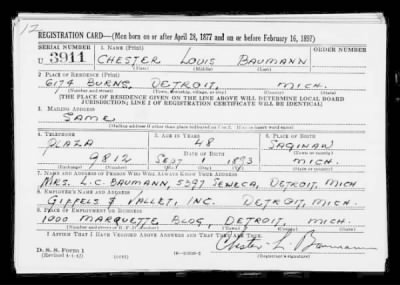 12
REGISTRATION CARD—(Men born on or after April 28, 1877 and on or before February 16, 1897)
SERIAL NUMBER
1. NAME (Print)
ORDER NUMBER
U 3911
CHESTER LOUIS BAUMANN
(First) (Middle) (Last)
2. PLACE OF RESIDENCE (Print)
6174 BURNS, DETROIT, MICH.
(Number and street) (Town, township, village, or city) (County) (State)
[THE PLACE OF RESIDENCE GIVEN ON THE LINE ABOVE WILL DETERMINE LOCAL BOARD
JURISDICTION; LINE 2 OF REGISTRATION CERTIFICATE WILL BE IDENTICAL]
3. MAILING ADDRESS
SAME
[Mailing address if other than place indicated on line 2. If same insert word same]
4. TELEPHONE
5. AGE IN YEARS
6. PLACE OF BIRTH
PLAZA
48
SAGINAW
DATE OF BIRTH
(Town or county)
9812
SEPT 1 1893
MICH.
(Exchange) (Number)
(Mo.) (Day) (Yr.)
(State or country)
7. NAME AND ADDRESS OF PERSON WHO WILL ALWAYS KNOW YOUR ADDRESS
MRS. L.C. BAUMANN, 5397 SENECA, DETROIT, MICH
8. EMPLOYER'S NAME AND ADDRESS
GIFFELS & VALLET, INC. DETROIT, MICH.
9. PLACE OF EMPLOYMENT OR BUSINESS
1000 MARQUETTE BLDG, DETROIT, MICH.
(Number and street or R. F. D. number) (Town) (County) (State)
I AFFIRM THAT I HAVE VERIFIED ABOVE ANSWERS AND THAT THEY ARE TRUE.
Chester L. Baumann
D. S. S. Form 1
(Revised 4-1-42)
(Registrant's signature)